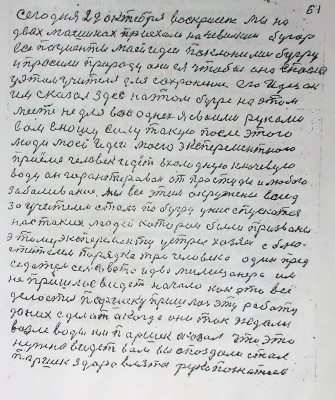 61
сегодня 22 октября воскресне мы на
двух машинах приехали на чевилкин бугор
все пациенты моей идеи поклонились бугру
и просили природу они ея чтобы она спасла
учителя для сохранение его идеи он
им сказал здес на этом бугре на этом
месте не для вас одних я своими руками
вам вношу силу такую после этого
люди моей идеи моего экспериментного
приёма человек идет в холодную ключевую
воду он гарантирован от простуды и любого
заболевание мы все этим окружены вслед
за учителем стали по бугру униз спускатся
на таких людей которые были призваны
этому эксперименту устрич хозяев с блю
стителем порядка три человека один пред
седатель сельсовета и два милиционера им
не пришлос видет начало как это всё
делается паршек пришел на эту работу
до них сделат а когда они так подошли
возле воды им паршек сказал что это
нужно видет вам вы споздали стал
паршек здороватся